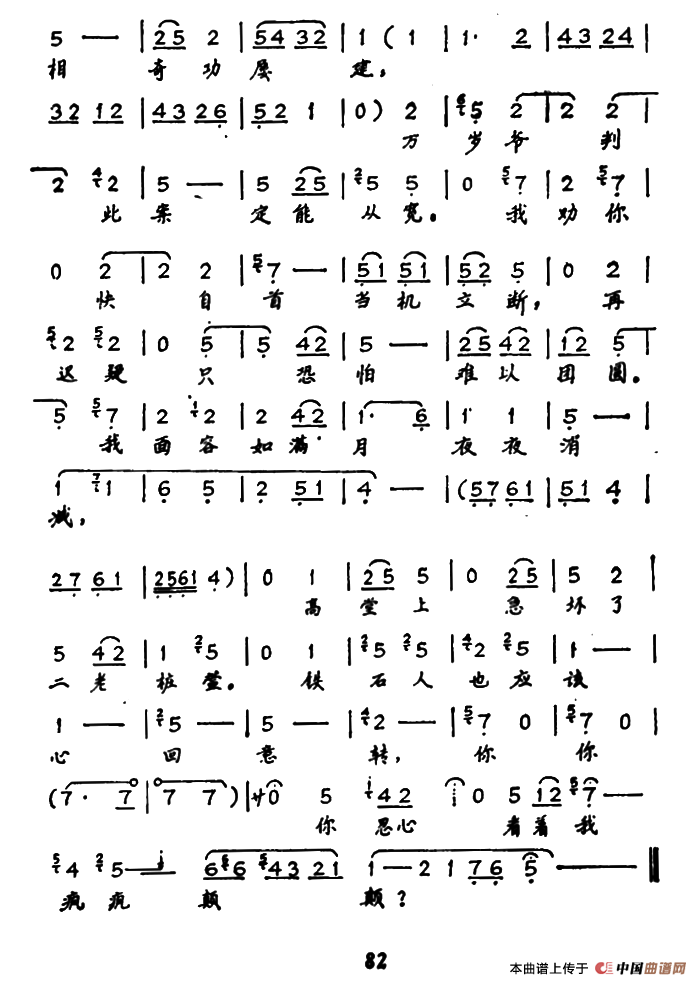 5 — | 25 2 | 54 32 | 1 ( 1 | 1· 2 | 43 24 |
相 奇 功 屡 建，
32 12 | 43 26 | 52 1 | 0 ) 2 | 5 2 | 2 2 |
万 岁 爷 判
2 2 | 5 — | 5 25 | 5 5 | 0 7 | 2 7 |
此 案 定 能 从 宽。 我 劝 你
0 2 | 2 2 | 7 — | 51 51 | 52 5 | 0 2 |
快 自 首 当 机 立 断， 再
2 2 | 0 5 | 5 42 | 5 — | 25 42 | 12 5 |
迟 疑 只 恐 怕 难 以 团 圆。
5 7 | 2 2 | 2 42 | 1· 6 | 1 1 | 5 — |
我 面 容 如 满 月 夜 夜 消
1 1 | 6 5 | 2 51 | 4 — | (57 61 | 51 4 |
减，
27 61 | 2561 4 ) | 0 1 | 25 5 | 0 25 | 5 2 |
高 堂 上 急 坏 了
5 42 | 1 5 | 0 1 | 5 5 | 2 5 | 1 — |
二 老 椿 萱。 铁 石 人 也 应 该
1 — | 5 — | 5 — | 2 — | 7 0 | 7 0 |
心 回 意 转， 你 你
( 7· 7 | 7 7 ) | 0 5 42 i 0 5 12 7 —
你 忍 心 看 着 我
4 5 — 66 43 21 1 — 2 1 76 5 —
疯 疯 颠 颠？
82
本曲谱上传于 中国曲谱网